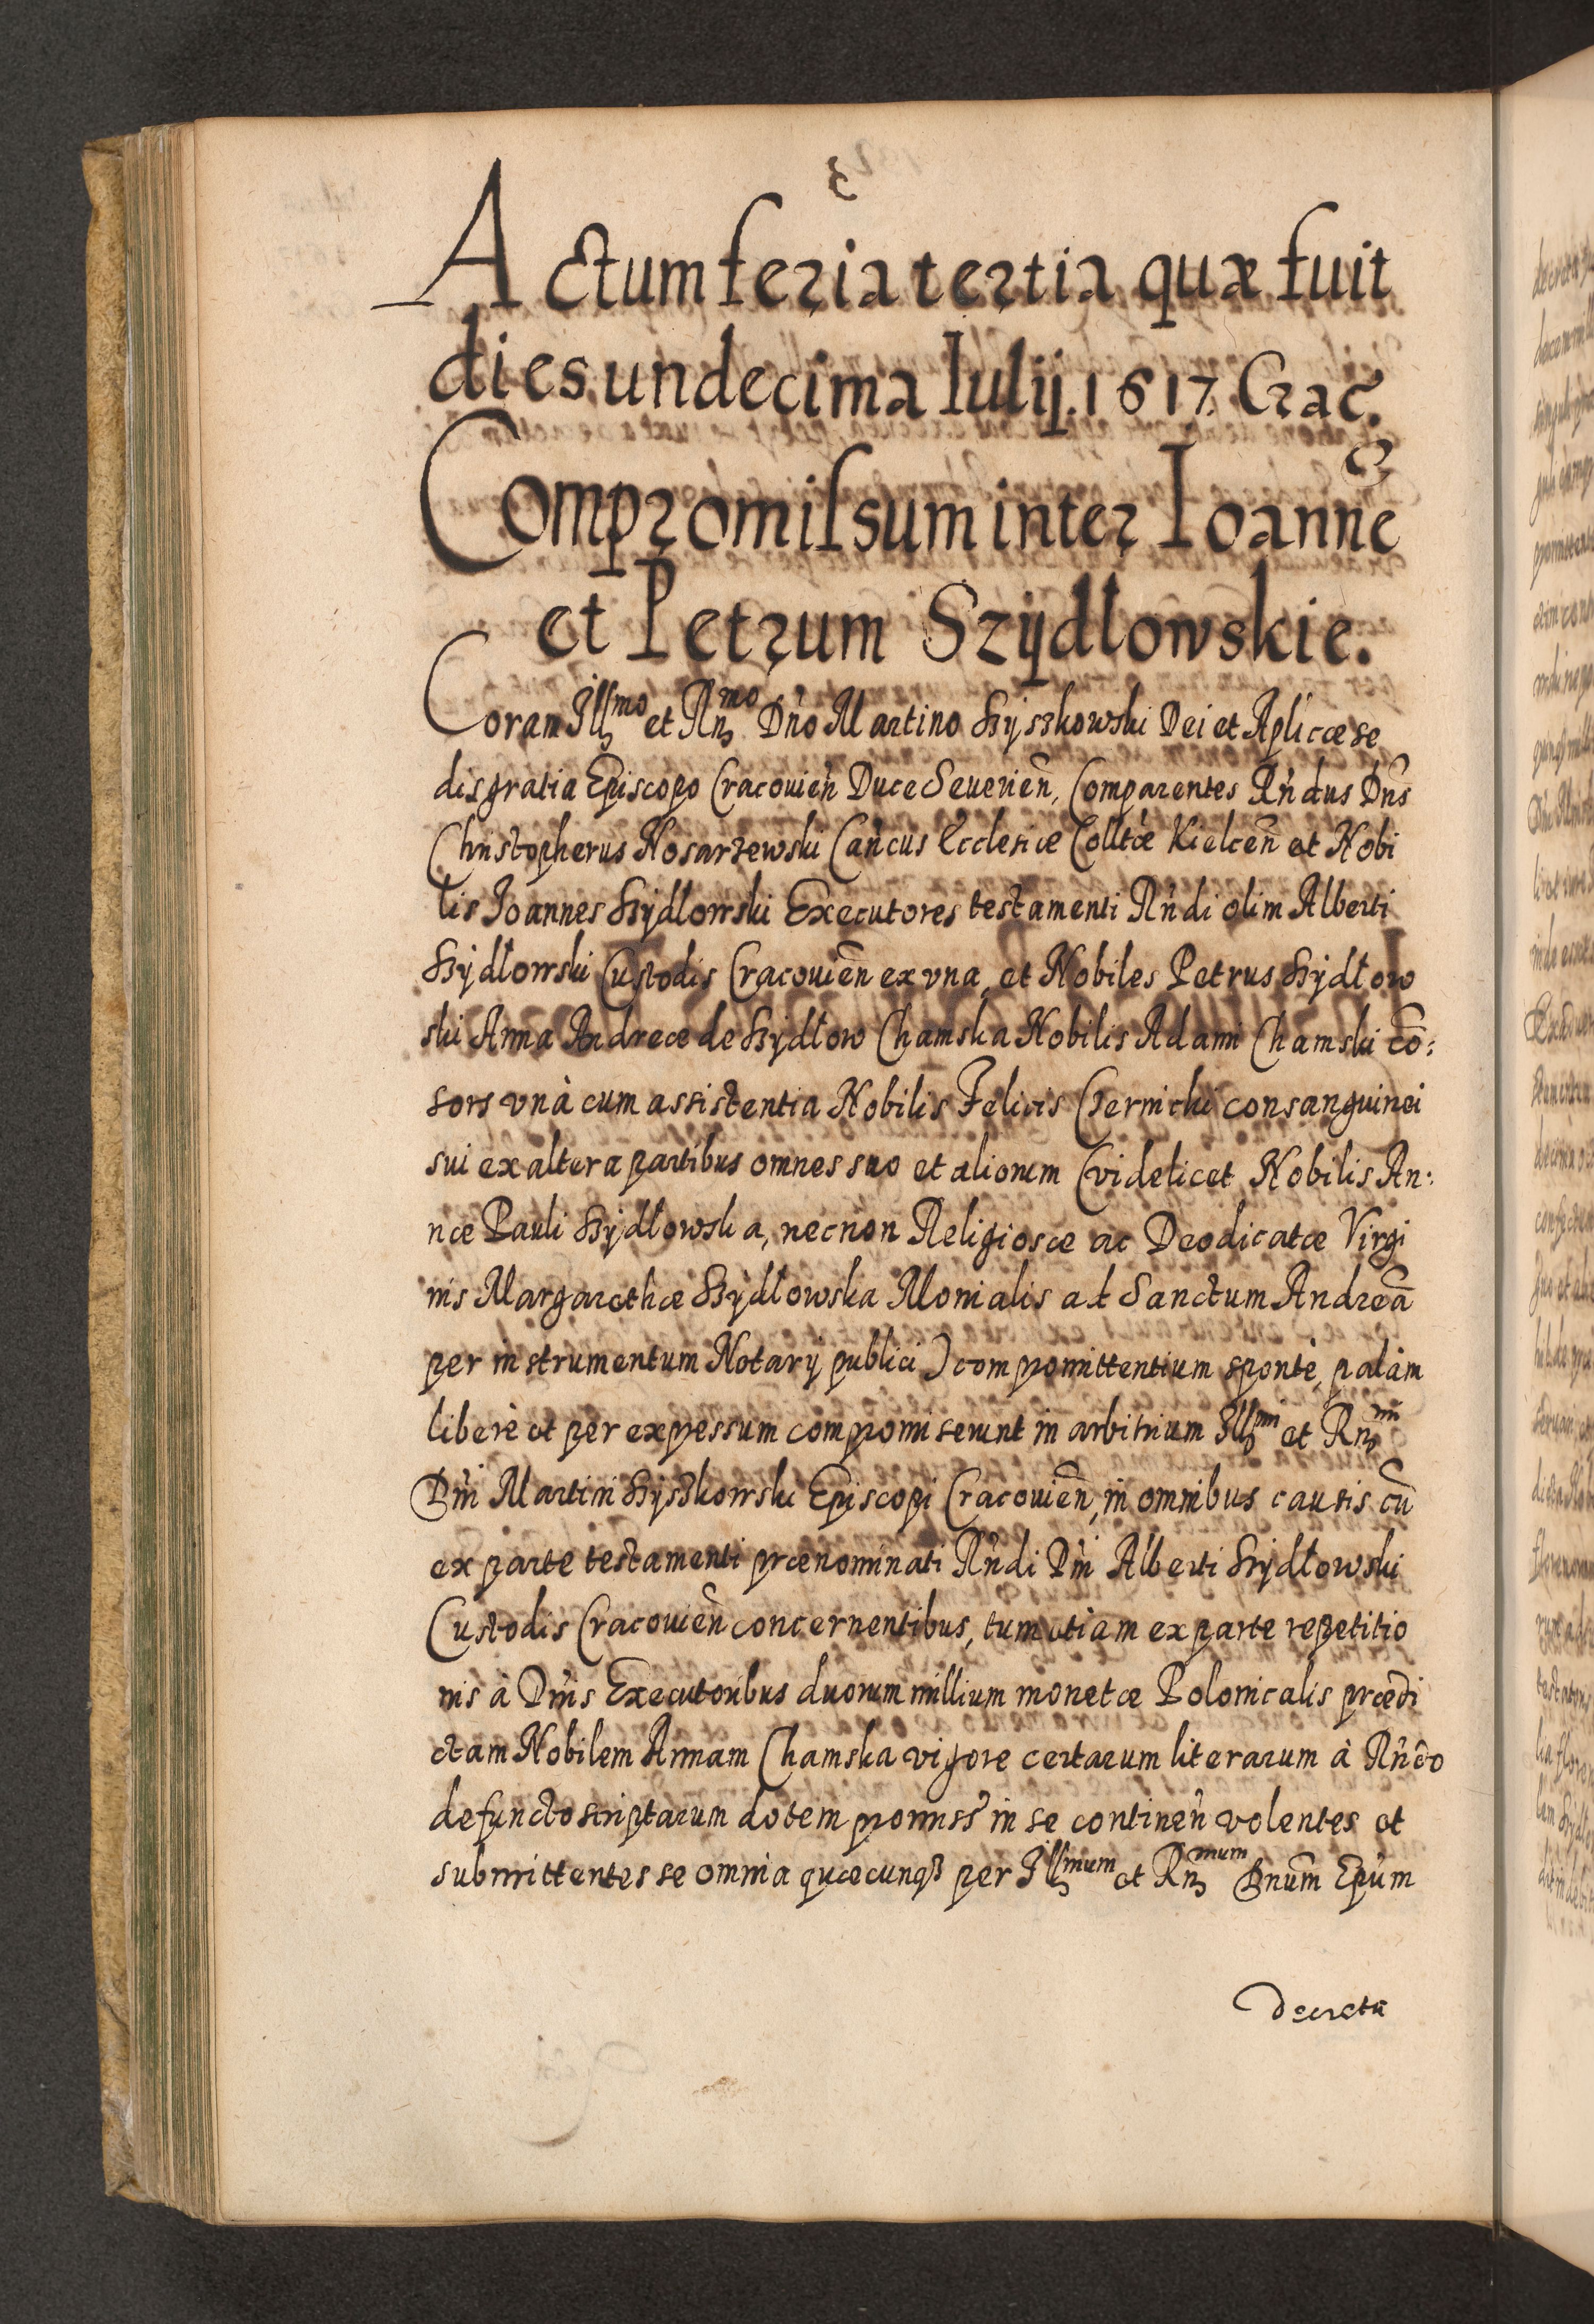 Actum feria tertia quæ fuit
dies undecima Iulij. 1617. Crac̃.
Compromissum inter Ioannẽ
et Petrum Szydłowskie.
Coram Illmo et Rnmo Dño Martino Szyszkowski Dei et Aplicæ se
dis gratia Episcopo Cracovieñ Duce Severieñ, Comparentes Rñdus Dñs
Christopherus Kosarzewski Cañcus Ecclesiæ Colltæ Kielceñ et Nobi
lis Joannes Szydlowski Executores testamenti Rñdi olim Alberti
Szydłowski Custodis Cracovieñ ex vna, et Nobiles Petrus Szydłow
ski Anna Andreæ de Szydłow Chamska Nobilis Adami Chamski cõ:
sors vnà cum assistentia Nobilis Felicis Czernicki consanguinei
sui ex altera partibus omnes suo et aliorum (videlicet Nobilis An:
næ Pauli Szydłowska, necnon Religiosæ ac Deodicatæ Virgi
nis Margarethæ Szydłowska Monialis ad Sanctum Andreã
per instrumentum Notarij publici) compromittentium spontè, palàm
liberè et per expressum compromiserunt in arbitrium Illmi et Rnmi
Dñi Martini Szyszkowski Episcopi Cracovieñ, in omnibus causis cũ
ex parte testamenti prænominati Rñdi Dñi Alberti Szydłowski
Custodis Cracovieñ concernentibus, tum etiam ex parte repetitio
nis à Dñis Executoribus duorum millium monetæ Polonicalis prædi
ctam Nobilem Annam Chamska vigore certarum literarum à Rñdo
defuncto scriptarum dotem promiss̃ in se contineñ volentes et
submittentes se omnia quæcunq3 per Illmum et Rnmum Dnũm Epũm
Decretũ